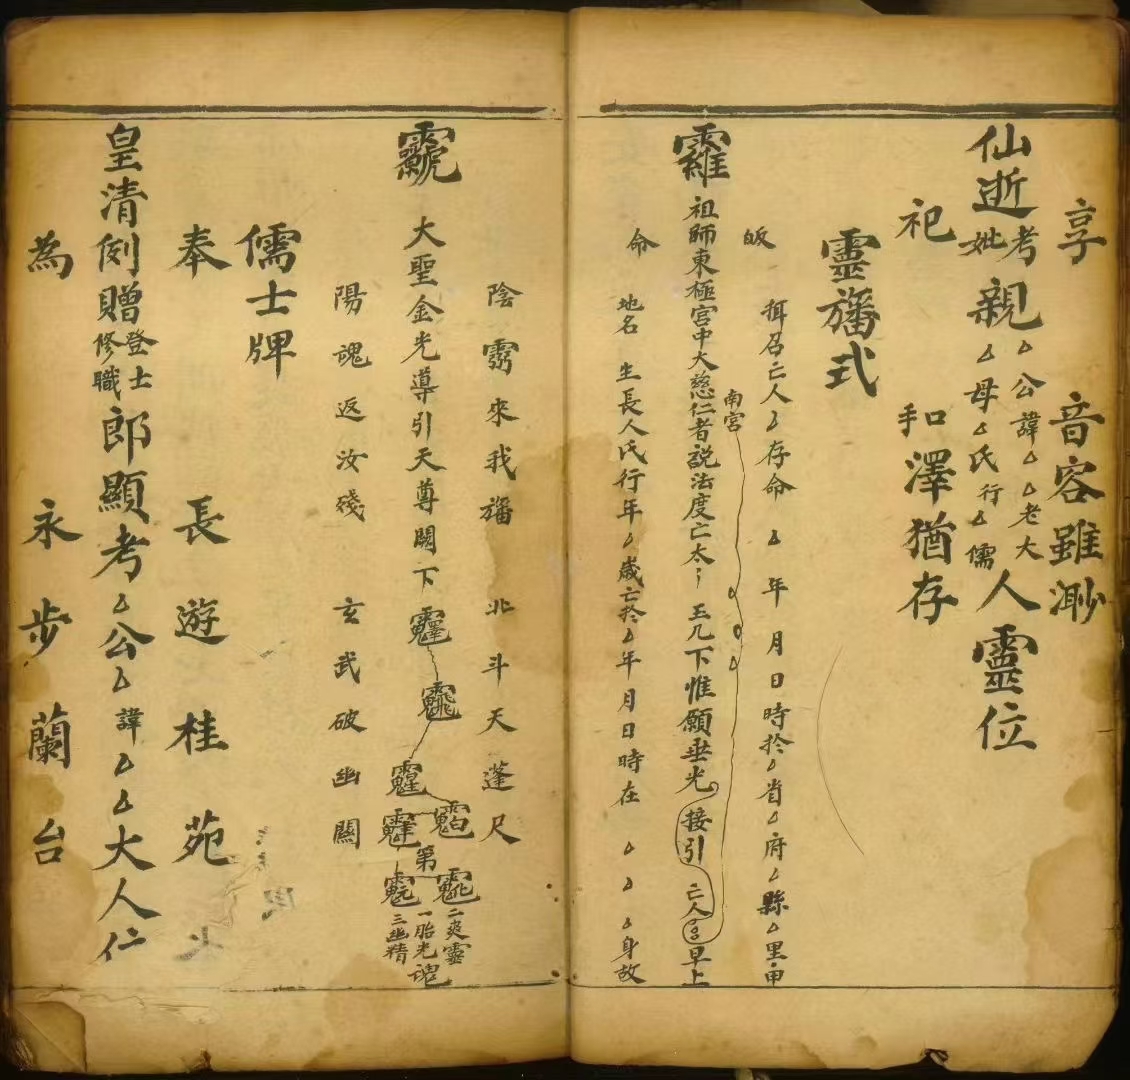 享 音容雖渺
仙逝考妣親△公諱△△老大△母△氏行△儒人靈位
祀 和澤猶存
靈旛式
皈 揖召亡人△存命△年月日時於△省△府△縣△里甲
南宮
祖師東極宮中大慈仁者說法度亡太乙玉几下惟願垂光接引亡人△早上
命 地名生長人氏行年△歲亡於△年月日時在△△△身故
陰 來我旛 北斗天蓬尺
大聖金光導引天尊闕下
第一胎光魂
二爽靈
三幽精
陽魂返汝殘 玄武破幽關
儒士牌
奉 長遊桂苑
皇清例贈登士修職郎顯考△公△諱△△大人位
為 永步蘭台